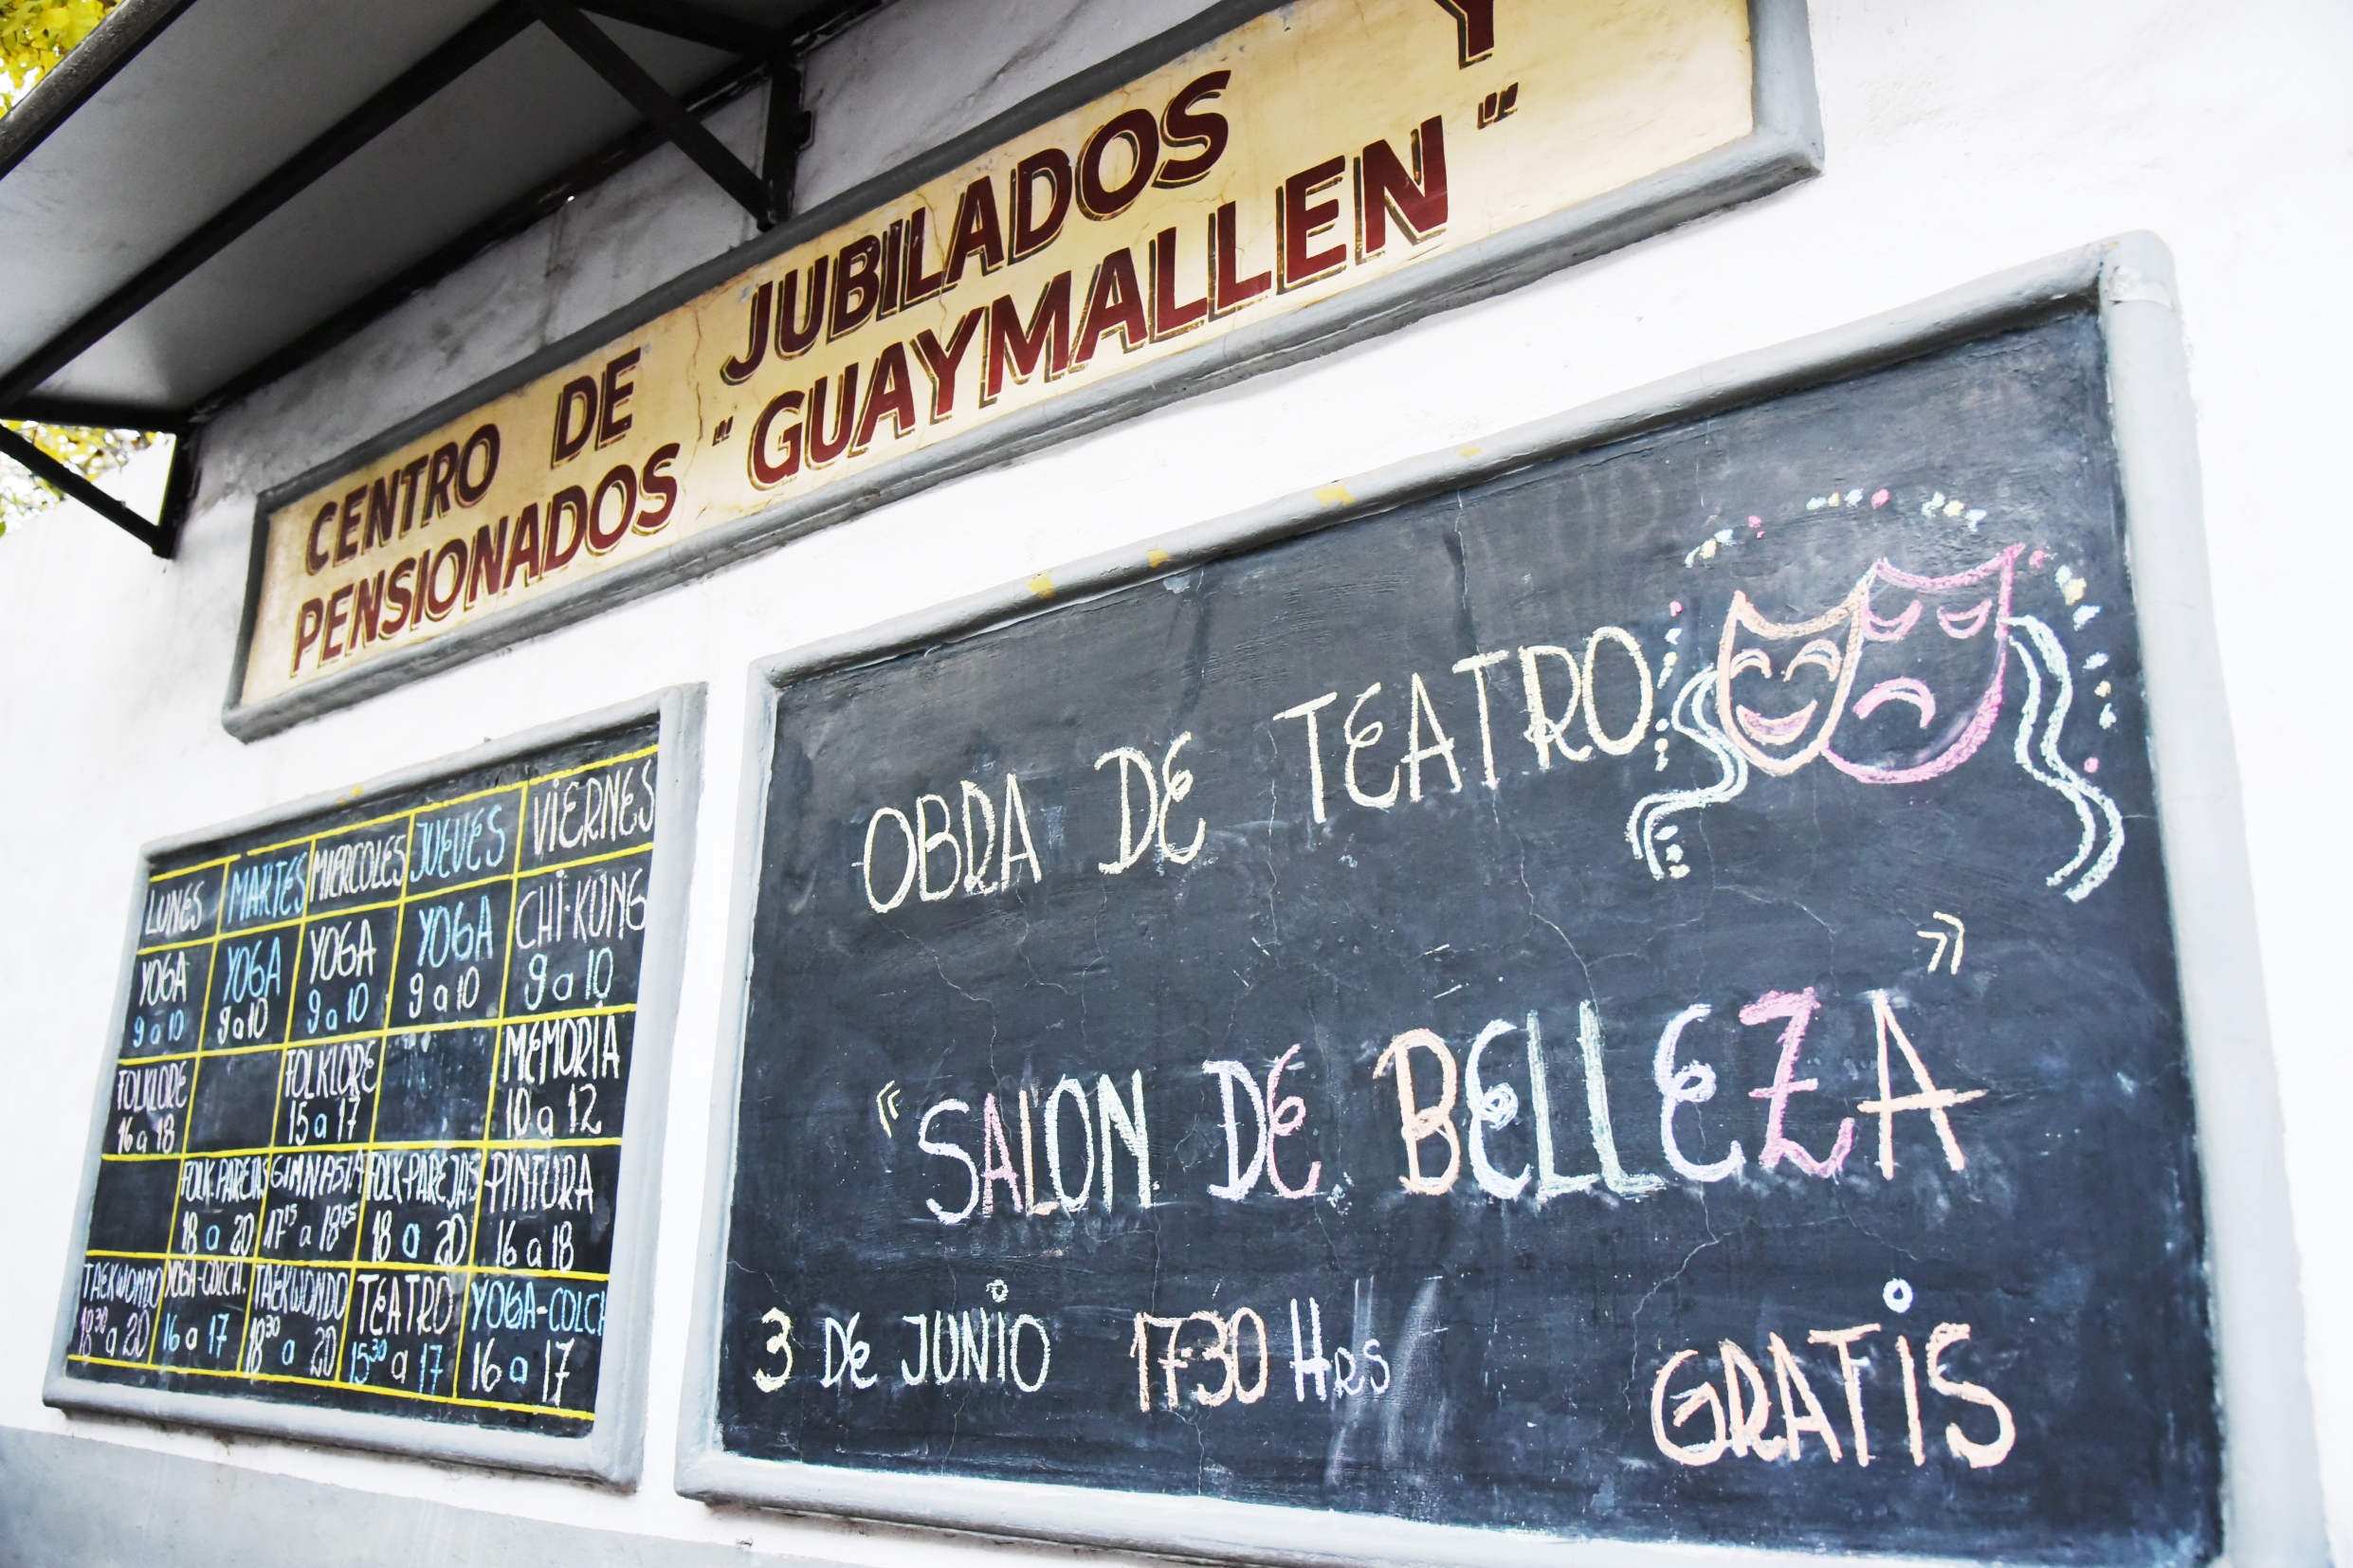 CENTRO DE JUBILADOS Y
PENSIONADOS "GUAYMALLEN"
LUNES MARTES MIERCOLES JUEVES VIERNES
YOGA YOGA YOGA YOGA CHI-KUNG
9 a 10 9 a 10 9 a 10 9 a 10 9 a 10
FOLKLORE FOLKLORE MEMORIA
16 a 18 15 a 17 10 a 12
FOLK.PAREJAS GIMNASIA FOLK-PAREJAS PINTURA
18 a 20 17 15 a 18 15 18 a 20 16 a 18
TAEKWONDO YOGA-COLCH. TAEKWONDO TEATRO YOGA-COLCH
18 30 a 20 16 a 17 18 30 a 20 15 30 a 17 16 a 17
OBRA DE TEATRO
"SALON DE BELLEZA"
3 DE JUNIO 17:30 Hrs GRATIS